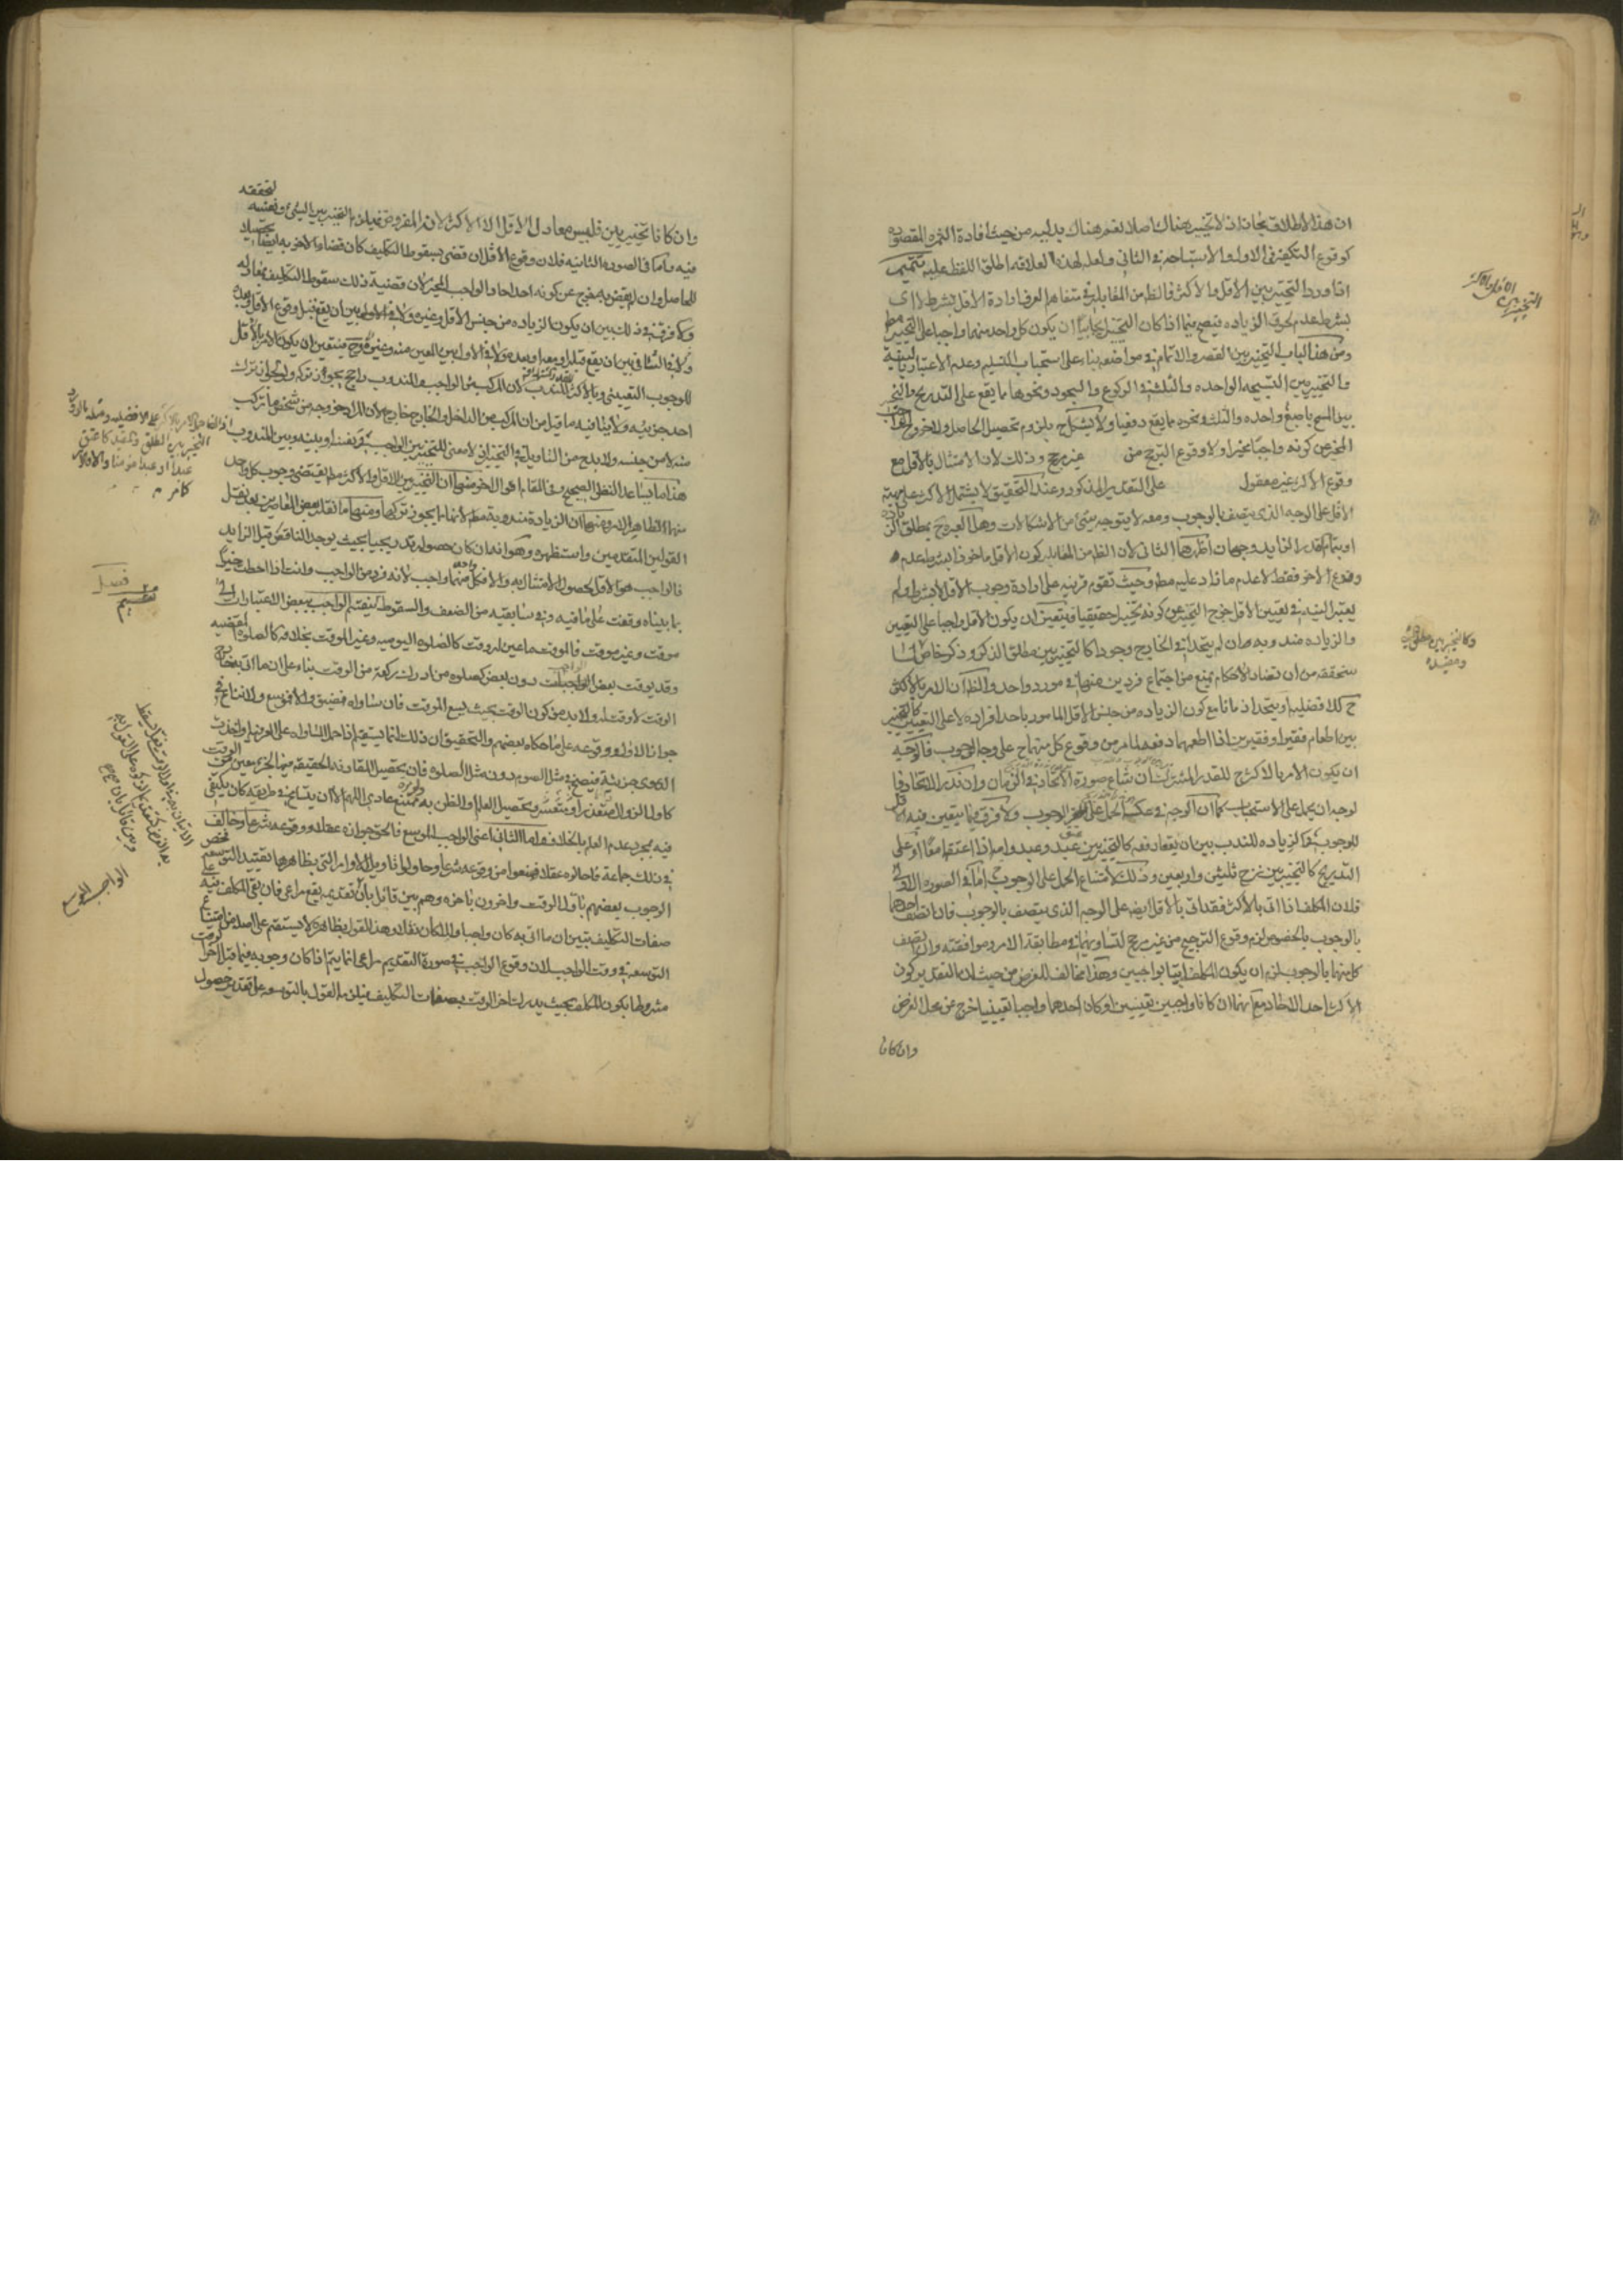 ان هذا الاطلاق مجاز اذ لا تخيير هناك اصلا نعم هناك بدلية من حيث افادة الثمرة المقصودة
كوقوع التكفير في الاول والاستباحة في الثاني ولعله لهذه العلاقة اطلق اللفظ عليه تتميم
اذا ورد التخيير بين الاقل والاكثر فالظ من المقابلة في متفاهم العرف ارادة الاقل بشرط لا اى
بشرط عدم لحوق الزيادة فيصح فيما اذا كان التخيير ايجابيا ان يكون كل واحد منهما واجبا على التخيير مط
ومن هذا الباب التخيير بين القصر والاتمام في مواضعه بناء على استحباب التسليم وعدم الاعتبار بالنية
والتخيير بين التسبيحة الواحدة والثلث في الركوع والسجود ونحوها مما يقع على التدريج والتخيير
بين المسح باصبع واحدة والثلث ونحوه مما يقع دفعيا ولا يشكل ح بلزوم تحصيل الحاصل ولا بخروج الواجب
المخير عن كونه واجبا مخيرا ولا وقوع الترجيح من غير مرجح وذلك لان الامتثال بالاقل مع
وقوع الاكثر غير معقول على التقدير المذكور وعند التحقيق لا يشتمل الاكثر على مهية
الاقل على الوجه الذى يتصف بالوجوب ومعه لا يتوجه شئ من الاشكالات وهل العبرة ح بمطلق الزيادة
او بتمام القدر الزايد وجهان اظهرهما الثانى لان الظ من المقابلة كون الاقل ماخوذا بشرط عدم
وقوع الاخر فقط لا عدم ما زاد عليه مط وحيث تقوم قرينة على ارادة وجوب الاقل لا بشرط ولم
يعتبر النية في تعيين الاقل خرج التخيير عن كونه تخييرا حقيقيا فيتعين ان يكون الاقل واجبا على التعيين
والزيادة مندوبة وان لم يتحدا في الخارج وجودا كالتخيير بين مطلق الذكر وذكر خاص لما
سنحققه من ان تضاد الاحكام يمنع من اجتماع فردين منها في مورد واحد والظ ان الامر بالاكثر
ح كلا فضلية او يتحدا زمانا مع كون الزيادة من جنس الاقل المامور باحد افراده لا على التعيين كالتخيير
بين اطعام فقير او فقيرين اذا اطعمهما دفعة لما مر من وقوع كل منهما ح على وجه الوجوب فالوجه
ان يكون الامر بالاكثر ح للقدر المشترك ان شاع صورة الاتحاد في الزمان وان ندر الاتحاد فا
لوجه ان يحمل على الاستحباب كما ان الوجه في عكسه الحمل على الوجوب ولا فرق فيما يتعين فيه الاقل
للوجوب والزيادة للندب بين ان يقعا دفعة كالتخيير بين عتق عبد وعبد وامة اذا اعتقهما معا او على
التدريج كالتخيير بين نزح ثلثين واربعين وذلك لامتناع الحمل على الوجوب ح اما في الصورة الاولى
فلان المكلف اذا اتى بالاكثر فقد اتى بالاقل ايضا على الوجه الذى يتصف بالوجوب فان اتصف احدهما
بالوجوب بالخصوص لزم وقوع الترجيح من غير مرجح لتساويهما في مطابقة الامر وموافقته وان اتصف
كل منهما بالوجوب لزم ان يكون المكلف اتيا بواجبين وهذا مخالف للغرض من حيث ان التقدير كون
الاكثر احد الاحاد مع انهما ان كانا واجبين تعيينيين او كان احدهما واجبا تعيينيا خرج عن محل الفرض
وان كانا
التخيير بين الاقل والاكثر
وكالتخيير بين مطلق
ومقيده
وان كانا تخييريين فليس معادل الاقل الا الاكثر لان المفروض فيلزم التخيير بين الشئ ونفسه لتحققه
فيه واما في الصورة الثانية فلان وقوع الاقل ان قضى بسقوط التكليف كان قضاء الاخر به ايضا تحصيلا
للحاصل وان لم يقض به خرج عن كونه احد احاد الواجب المخير لان قضية ذلك سقوط التكليف بمعادله
ولا فرق في ذلك بين ان يكون الزيادة من جنس الاقل وغيره ولا في الاول بين ان يقع قبل وقوع الاقل وبعده
ولا في الثانى بين ان يقع قبله او معه او بعده ولا في الاول بين المعين منه وغيره وح فيتعين ان يكون الامر بالاقل
للوجوب التعيينى وبالاكثر للندب لان المركب من الواجب والمندوب راجح يجوز تركه ولو لجواز ترك
احد جزئيه ولا ينافيه ما قيل من ان المركب من الداخل والخارج خارج لان المراد خروجه من شخص ما تركب
منه لا من جنسه ولا بد ح من التاويل في التخيير اذ لا معنى للتخيير بين الواجب ونفسه او بينه وبين المندوب
هذا ما يساعد النظر الصحيح وفي المقام اقوال اخر منها ان التخيير بين الاقل والاكثر مط يقتضى وجوب كل واحد
منهما لظاهر الامر ومنها ان الزيادة مندوبة مط لانها مما يجوز تركها ومنها ما نقله بعض المعاصرين بعد نقل
القولين المتقدمين واستظهره وهو انه ان كان حصوله تدريجيا بحيث يوجد الناقص قبل الزايد
فالواجب هو الاقل لحصول الامتثال به والا فكل واحد منهما واجب لانه فرد من الواجب وانت اذا احطت خبرا
بما بيناه وقفت على ما فيه وفي سابقيه من الضعف والسقوط ينقسم الواجب ببعض الاعتبارات الى
موقت وغير موقت فالموقت ما عين له وقت كالصلوة اليومية وغير الموقت بخلافه كالصلوة المقضية
وقد يوقت بعض الواجب دون بعض كصلوة من ادرك ركعة من الوقت بناء على ان ما اتى به خارج
الوقت لا وقت له ولا بد من كون الوقت بحيث يسع الموقت فان ساواه فمضيق والا فموسع ولا نزاع في
جواز الاول ووقوعه على ما حكاه بعضهم والتحقيق ان ذلك انما يستقيم اذا حمل المساواة على العرفية او اخذت
فيه بمجرد عدم العلم بالخلاف واما الثانى اعنى الواجب الموسع فالحق جوازه عقلا ووقوعه شرعا وخالف
في ذلك جماعة فاحالوه عقلا فمنعوا من وقوعه شرعا وحاولوا تاويل الاوامر التى بظاهرها يفيد التوسعة فخص
الوجوب بعضهم باول الوقت واخرون باخره وهم بين قائل بان تقديمه يقع مراعى فان بقى المكلف على
صفات التكليف تبين ان ما اتى به كان واجبا والا كان نفلا وهذا القول بظاهره لا يستقيم على اصله من امتناع
التوسعة في وقت الواجب لان وقوع الواجب في صورة التقديم مراعى انما يتم اذا كان وجوبه فيما قبل اخر الوقت
مشروطا بكون المكلف بحيث يدرك اخر الوقت بصفات التكليف فيلزمه القول بالتوسعة على تقدير حصول
فصل
تقسيم
الواجب الموسع